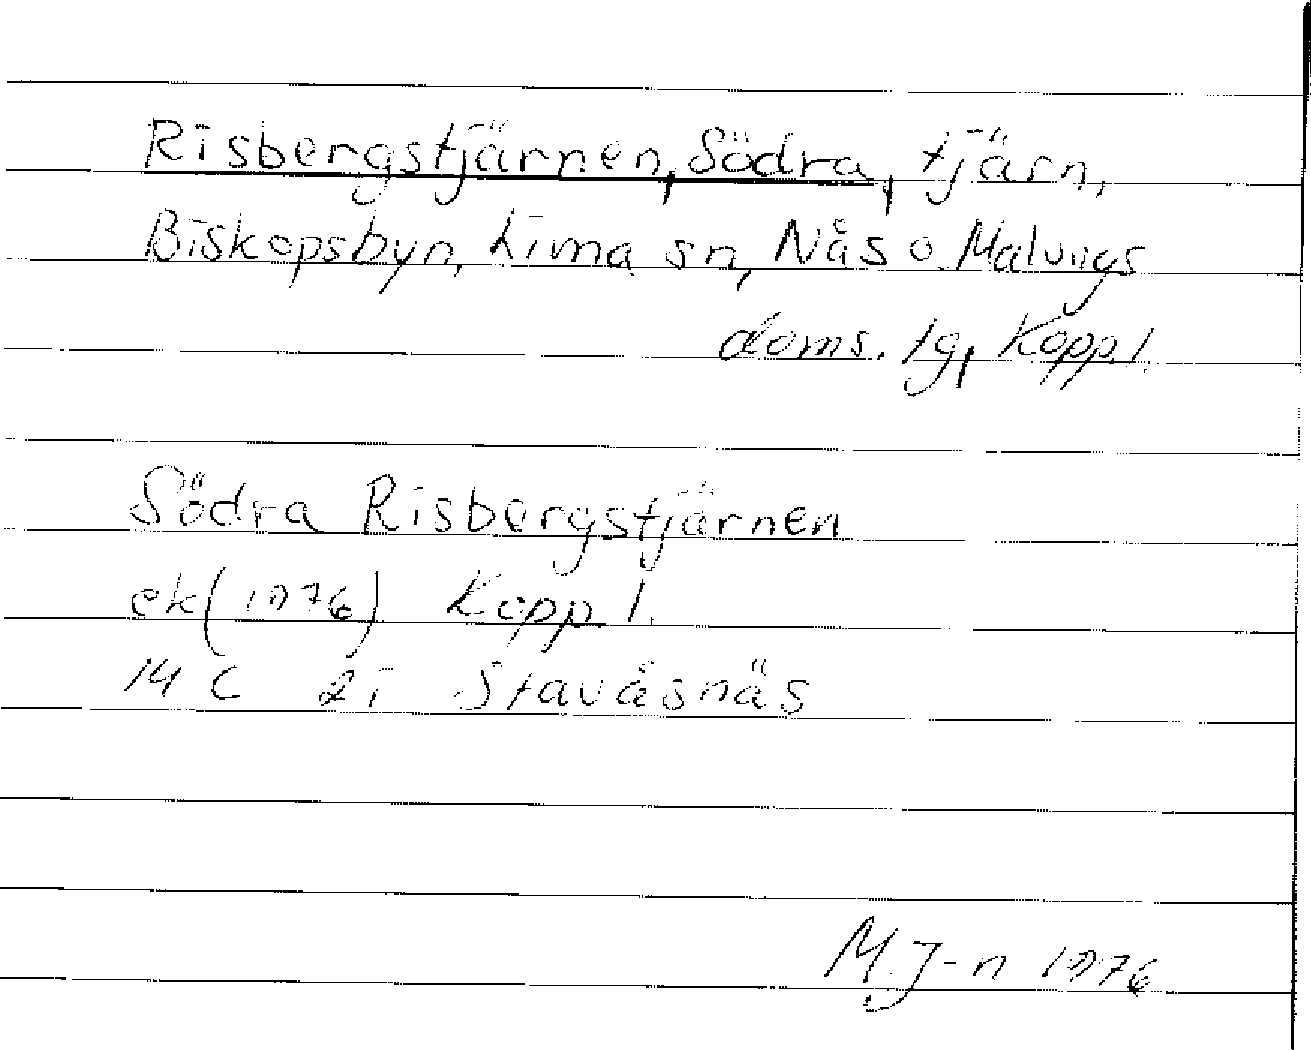 Risbergstjärnen, Södra, tjärn,
Biskopsbyn, Lima sn, Nås o. Malungs
doms. lg, Kopp. l.
Södra Risbergstjärnen
ek (1976) Kopp. l.
14 C 2i Stavåsnäs
M. J-n 1976